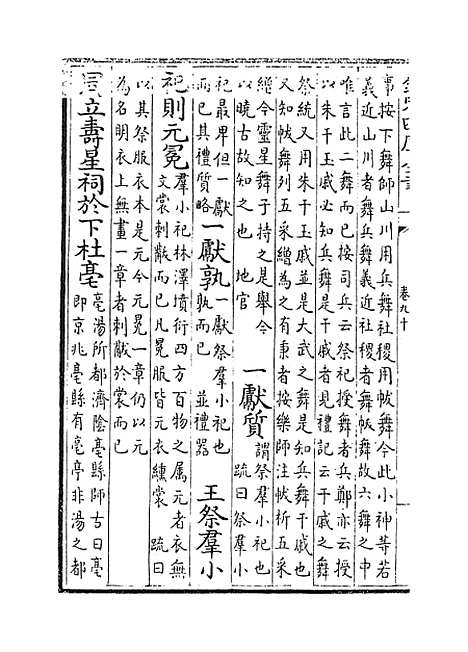 欽定四庫全書
卷九十
事按下舞師山川用兵舞社稷用帗舞今此小神等若
義近山川者舞兵舞義近社稷者舞帗舞故六舞之中
唯言此二舞而已按司兵云祭祀授舞者兵鄭亦云授
以朱干玉戚必知兵舞是干戚者見禮記云干戚之舞
祭統又用朱干玉戚並是大武之舞是知兵舞干戚也
又知帗舞列五采繒為之有秉者按樂師注帗析五采
繒今靈星舞子持之是舉今
以曉古故知之也 地官
一獻質
謂祭羣小祀也
疏曰祭羣小
祀最卑但一獻
而已其禮質略
一獻孰
一獻祭羣小祀也
孰而已 並禮器
王祭羣小
祀則元冕
羣小祀林澤墳衍四方百物之属元者衣無
文裳刺黻而已凡冕服皆元衣纁裳 疏曰
以其祭服衣本是元今元冕一章仍以元
為名明衣上無畫一章者刺黻於裳而已
周立壽星祠於下杜亳
亳湯所都濟陰亳縣師古曰亳
即京兆亳縣有亳亭非湯之都